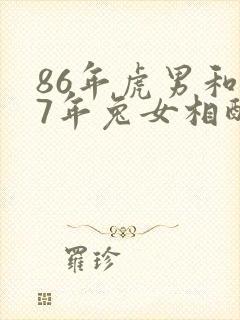 86年虎男和
7年兔女相配
羅珍